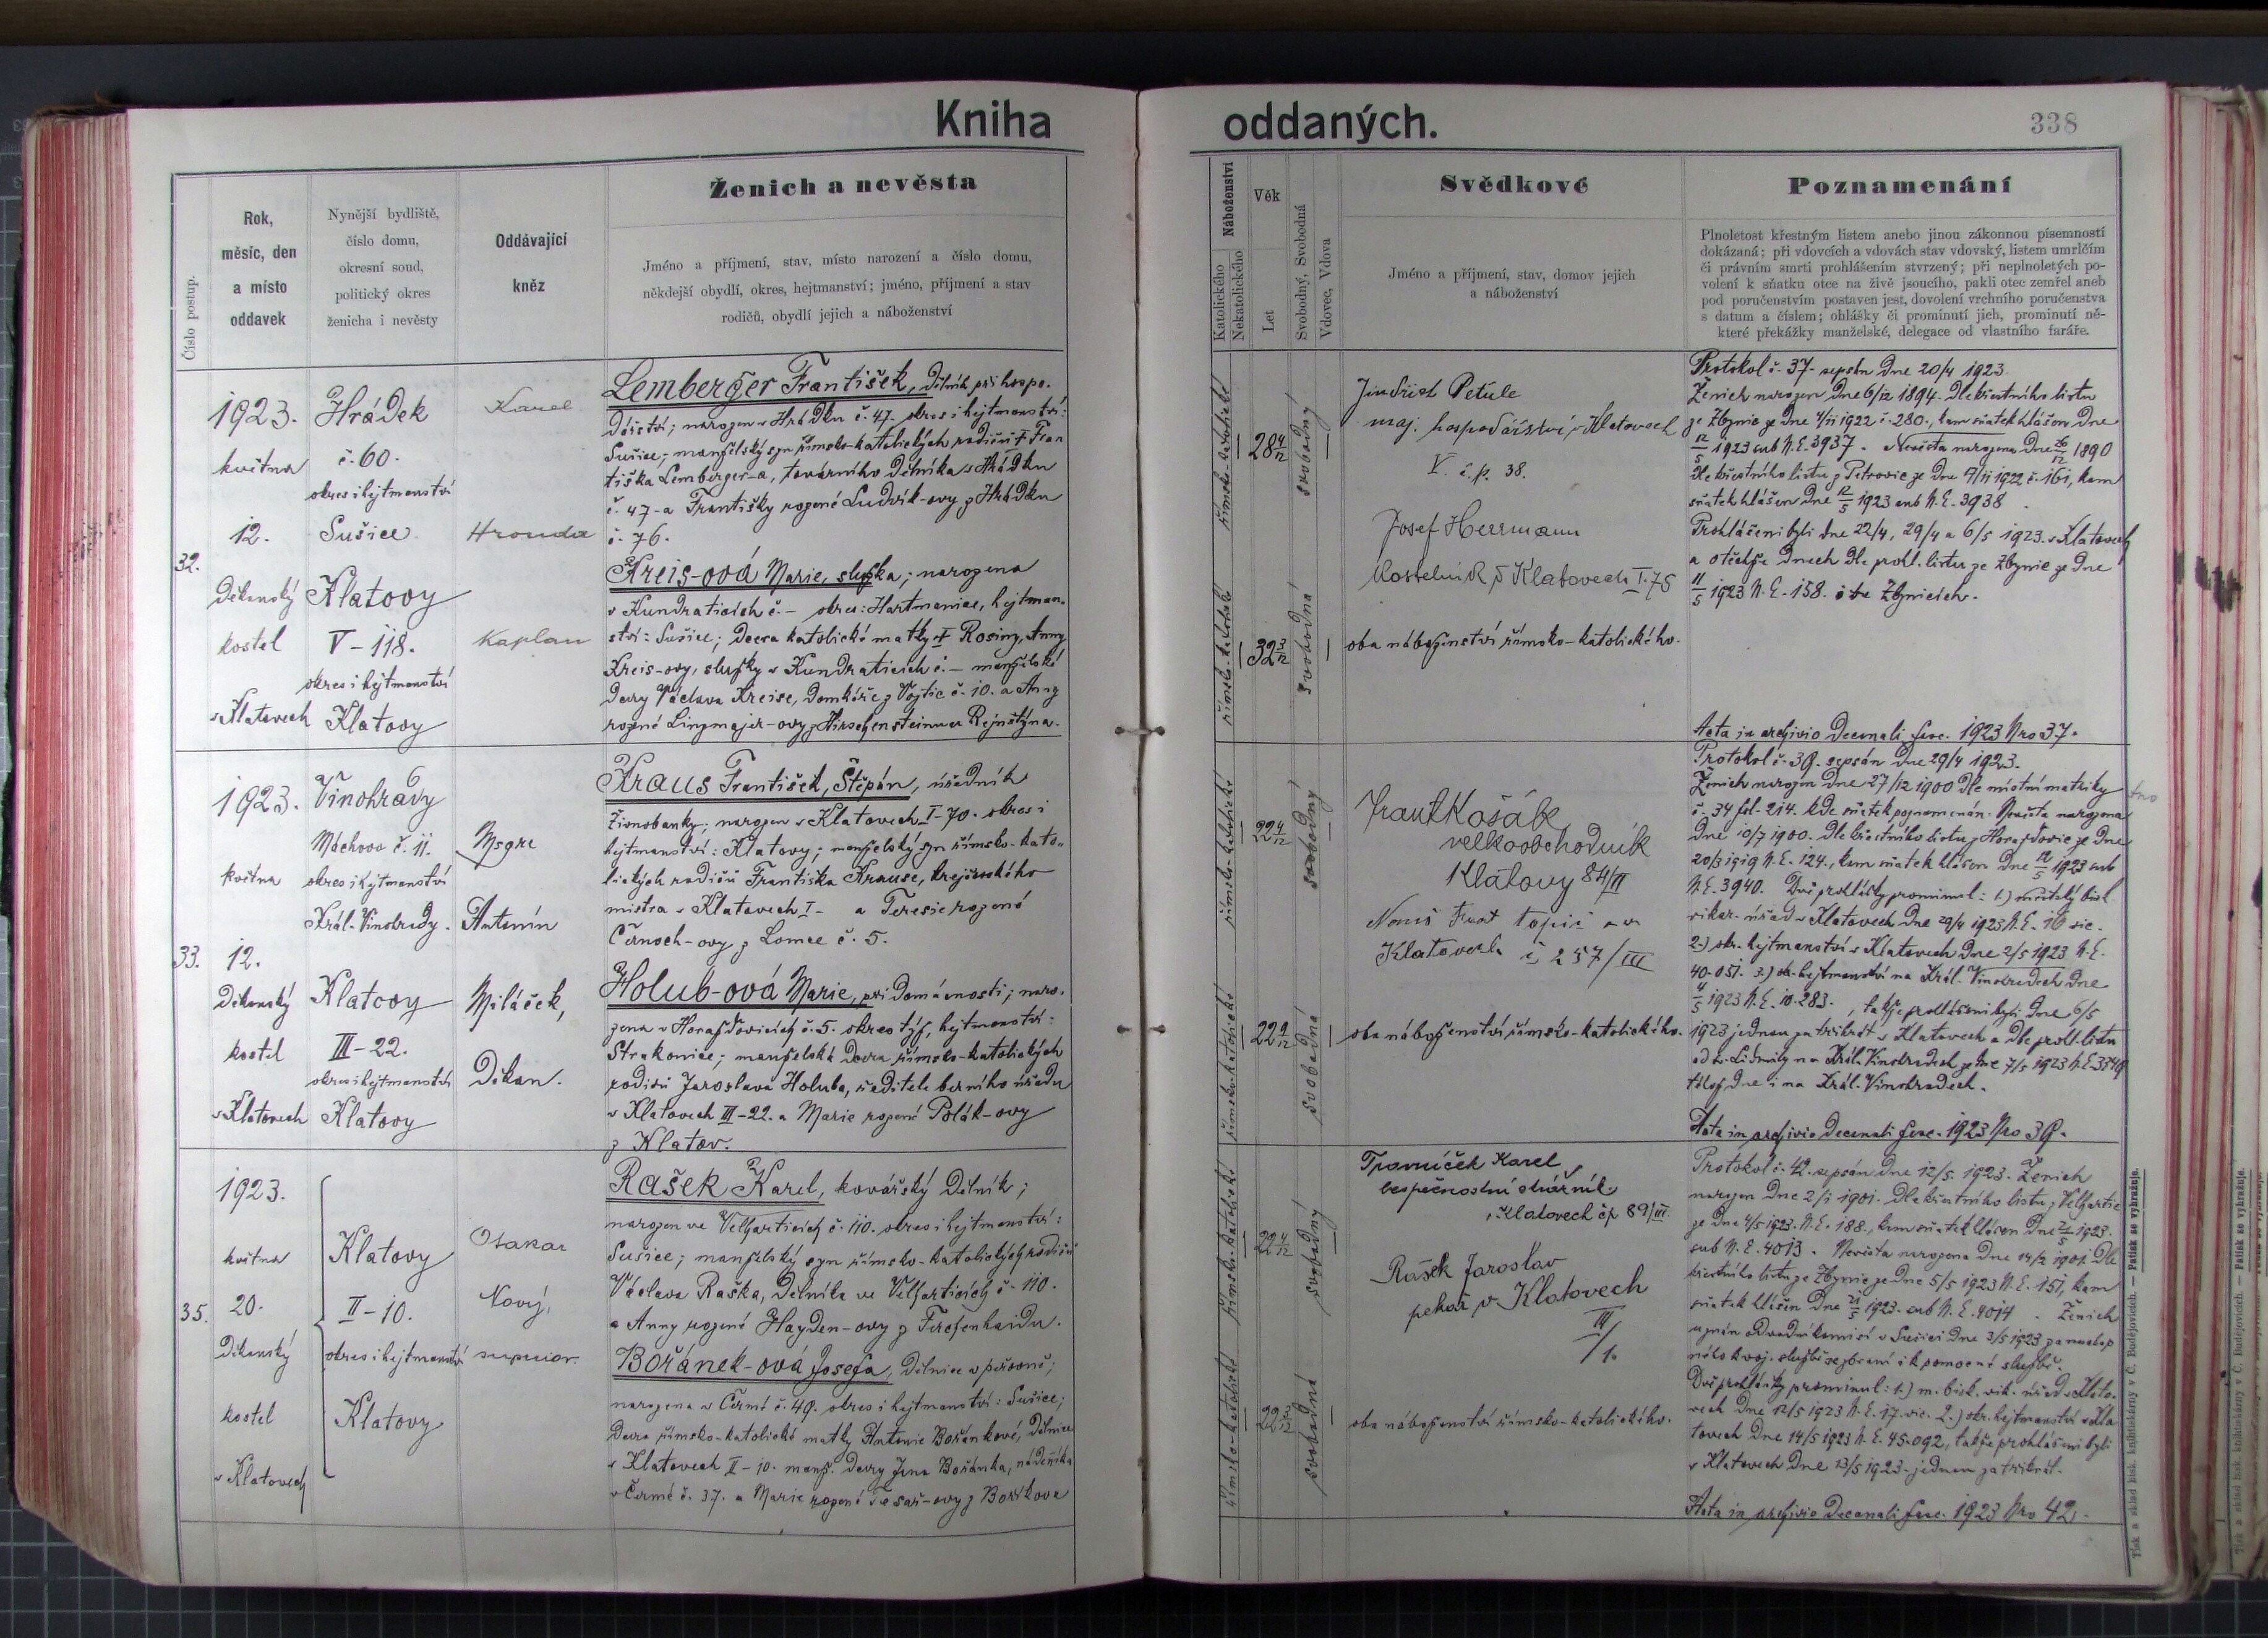 Kniha
oddaných.
338
Ženich a nevěsta
Číslo postup.
Rok,
měsíc, den
a místo
oddavek
Nynější bydliště,
číslo domu,
okresní soud,
politický okres
ženicha i nevěsty
Oddávající
kněz
Jméno a příjmení, stav, místo narození a číslo domu,
někdejší obydlí, okres, hejtmanství; jméno, příjmení a stav
rodičů, obydlí jejich a náboženství
Náboženství
Katolického
Nekatolického
Věk
Let
Svobodný, Svobodná
Vdovec, Vdova
Svědkové
Jméno a příjmení, stav, domov jejich
a náboženství
Poznamenání
Plnoletost křestným listem anebo jinou zákonnou písemností
dokázaná; při vdovcích a vdovách stav vdovský, listem umrlčím
či právním smrti prohlášením stvrzený; při neplnoletých po-
volení k sňatku otce na živě jsoucího, pakli otec zemřel aneb
pod poručenstvím postaven jest, dovolení vrchního poručenstva
s datum a číslem; ohlášky či prominutí jich, prominutí ně-
které překážky manželské, delegace od vlastního faráře.
32.
1923.
května
12.
Děkanský
kostel
v Klatovech
Hrádek
č. 60.
okres i hejtmanství
Sušice
Klatovy
V - 118.
okres i hejtmanství
Klatovy
Karel
Hronda
Kaplan
Lemberger František, dělník při hospo-
dářství; narozen v Hrádku č. 47. okres i hejtmanství:
Sušice; manželský syn římsko-katolických rodičů † Fran
tiška Lemberger-a, továrního dělníka v Hrádku
č. 47 - a Františky rozené Ludvík-ovy z Hrádku
č. 76.
Kreis-ová Marie, služka; narozena
v Kundraticích č. - okres: Hartmanice, hejtman-
ství: Sušice; dcera katolické matky † Rosiny, Anny
Kreis-ovy, služky v Kundraticích č. - manželské
dcery Václava Kreise, domkáře z Vojtic č. 10. a Anny
rozené Lingmajer-ovy z Hirschensteinu Rejnštýna.
římsko-katolické
28 4/12
svobodný
římsko-katolické
32 3/12
svobodná
Jindřich Petule
maj. hospodářství v Klatovech
V. č.p. 38.
Josef Herrmann
kostelník v Klatovech I. 75
oba náboženství římsko-katolického.
Protokol č. 37. sepsán dne 20/4 1923.
Ženich narozen dne 6/12 1894. Dle křestního listu
ze Zbynic ze dne 4/11 1922 č. 280., kam sňatek hlášen dne
12/5 1923 sub N.E. 3937. Nevěsta narozena dne 26/12 1890
dle křestního listu z Petrovic ze dne 7/11 1922 č. 161, kam
sňatek hlášen dne 12/5 1923 sub N.E. 3938.
Prohlášeni byli dne 22/4, 29/4 a 6/5 1923. v Klatovech
a o těchže dnech dle prohl. listu ze Zbynic ze dne
11/5 1923 N.E. 158. i ve Zbynicích.
Acta in archivio decanali fasc. 1923 Nro 37.
33.
1923.
května
12.
Děkanský
kostel
v Klatovech
Vinohrady
Máchova č. 11.
okres i hejtmanství
Král. Vinohrady.
Klatovy
III - 22.
okres i hejtmanství
Klatovy
Msgre
Antonín
Miláček,
Děkan.
Kraus František, Štěpán, úředník
Živnobanky; narozen v Klatovech I - 70. okres i
hejtmanství: Klatovy; manželský syn římsko-kato-
lických rodičů Františka Krause, krejčovského
mistra v Klatovech I - a Teresie rozené
Černoch-ovy z Lomce č. 5.
Holub-ová Marie, při domácnosti; naro-
zena v Horažďovicích č. 5. okres týž, hejtmanství:
Strakonice; manželská dcera římsko-katolických
rodičů Jaroslava Holuba, ředitele berního úřadu
v Klatovech III - 22. a Marie rozené Polák-ovy
z Klatov.
římsko-katolické
22 4/12
svobodný
římsko-katolické
svobodná
velkoobchodník
Klatovy 84/II
topič
Klatovech č 257/III
oba náboženství římsko-katolického.
Protokol č. 39. sepsán dne 29/4 1923.
Ženich narozen dne 27/12 1900 dle místní matriky
č. 34 fol. 214. kde sňatek poznamenán. Nevěsta narozena
dne 10/7 1900. Dle křestního listu z Horažďovic ze dne
20/3 1919 N.E. 124., kam sňatek hlášen dne 12/5 1923 sub
N.E. 3940. Dvě prohlášky prominul: 1.) místní bisk.
vikar. úřad v Klatovech dne 29/4 1923 N.E. 16 vic.
2.) okr. hejtmanství v Klatovech dne 2/5 1923 N.E.
40.051. 3.) ok. hejtmanství na Král. Vinohradech dne
4/5 1923 N.E. 10.283., takže prohlášeni byli dne 6/5
1923 jednou za třikrát v Klatovech a dle prohl. listu
od sv. Lidmily na Král. Vinohradech ze dne 7/5 1923 N.E. 3349
téhož dne i na Král. Vinohradech.
Acta in archivio decanali fasc. 1923 Nro 39.
35.
1923.
května
20.
Děkanský
kostel
v Klatovech
Klatovy
II - 10.
okres i hejtmanství
Klatovy
Otakar
Nový,
superior.
Rašek Karel, kovářský dělník;
narozen ve Velharticích č. 110. okres i hejtmanství:
Sušice; manželský syn římsko-katolických rodičů
Václava Raška, dělníka ve Velharticích č. 110.
a Anny rozené Hayden-ovy z
Bořánek-ová Josefa, dělnice v pekárně;
narozena v Čermé č. 49. okres i hejtmanství: Sušice;
dcera římsko-katolické matky Antonie Bořánkové, dělnice
v Klatovech II - 10. manž. dcery Jana Bořánka, nádeníka
v Čermé č. 37. a Marie rozené Tesař-ovy z Bořikova
římsko-katolické
22 4/12
svobodný
římsko-katolické
22 3/12
svobodná
Travníček Karel
bezpečnostní strážník
v Klatovech čp 89/III
Rašek Jaroslav
pekař v Klatovech
III/1.
oba náboženství římsko-katolického.
Protokol č. 42. sepsán dne 12/5. 1923. Ženich
narozen dne 2/1 1901. Dle křestního listu z Velhartic
ze dne 4/5 1923. N.E. 188., kam sňatek hlášen dne 21/5 1923.
sub N.E. 4013. Nevěsta narozena dne 14/2 1901. Dle
křestního listu ze Zbynic ze dne 5/5 1923 N.E. 151, kam
sňatek hlášen dne 21/5 1923. sub N.E. 4014. Ženich
uznán odvodní komisí v Sušici dne 3/5 1923 za neschop
ného k voj. službě se zbraní i k pomocné službě.
Dvě prohlášky prominul: 1.) m. bisk. vik. úřad v Klato-
vech dne 12/5 1923 N.E. 17. vic. 2.) okr. hejtmanství v Kla
tovech dne 14/5 1923 N.E. 45.092, takže prohlášeni byli
v Klatovech dne 13/5 1923. jednou za třikrát.
Acta in archivio decanali fasc. 1923 Nro 42.
Tisk a sklad bisk. knihtiskárny v Č. Budějovicích. — Patisk se vyhražuje.